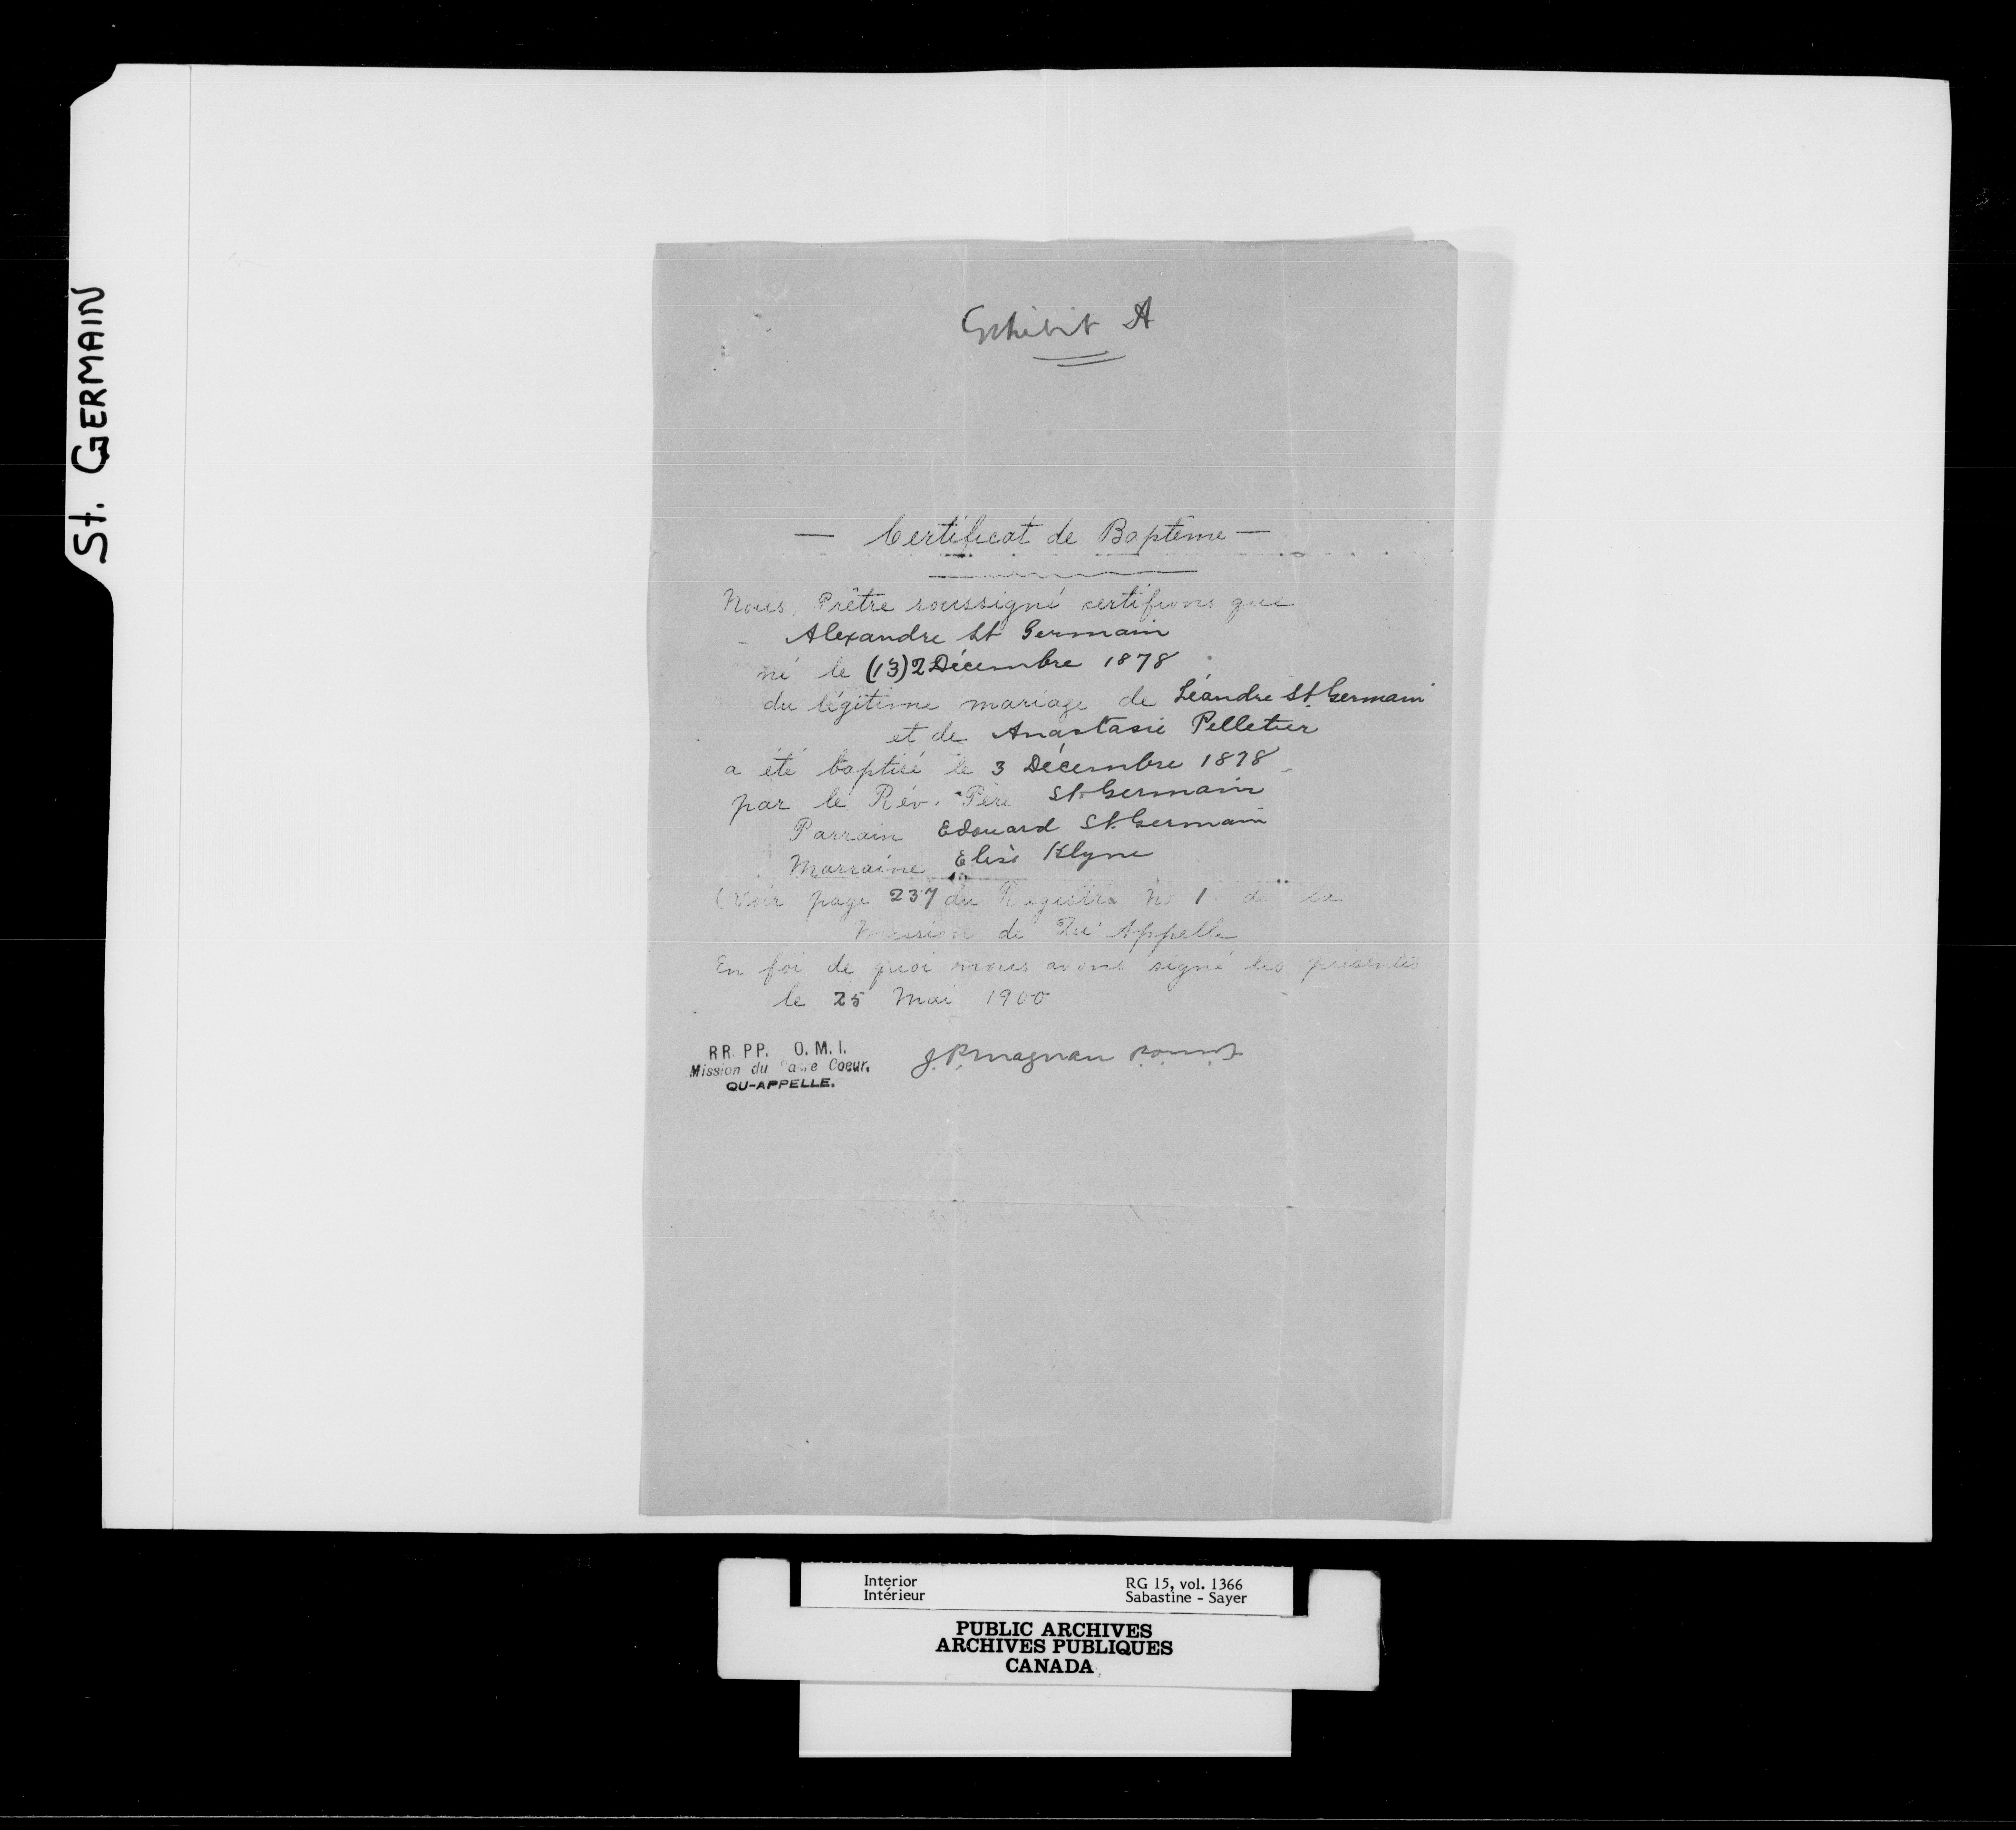 St. GERMAIN
Exhibit A
— Certificat de Baptême —
Nous, Prêtre soussigné certifions que
Alexandre St Germain
né le (13) 2 Décembre 1878
du légitime mariage de Léandre St. Germain
et de Anastasie Pelletier
a été baptisé le 3 Décembre 1878
par le Rév. Père St Germain
Parrain Edouard St. Germain
Marraine Elise Klyne
(Voir page 237 du Registre No 1 de la
Mission de Qu'Appelle
En foi de quoi nous avons signé les présentes
le 25 Mai 1900
J. P. Magnan
RR. PP. O. M. I.
Mission du Coeur.
QU-APPELLE.
Interior
Intérieur
RG 15, vol. 1366
Sabastine - Sayer
PUBLIC ARCHIVES
ARCHIVES PUBLIQUES
CANADA